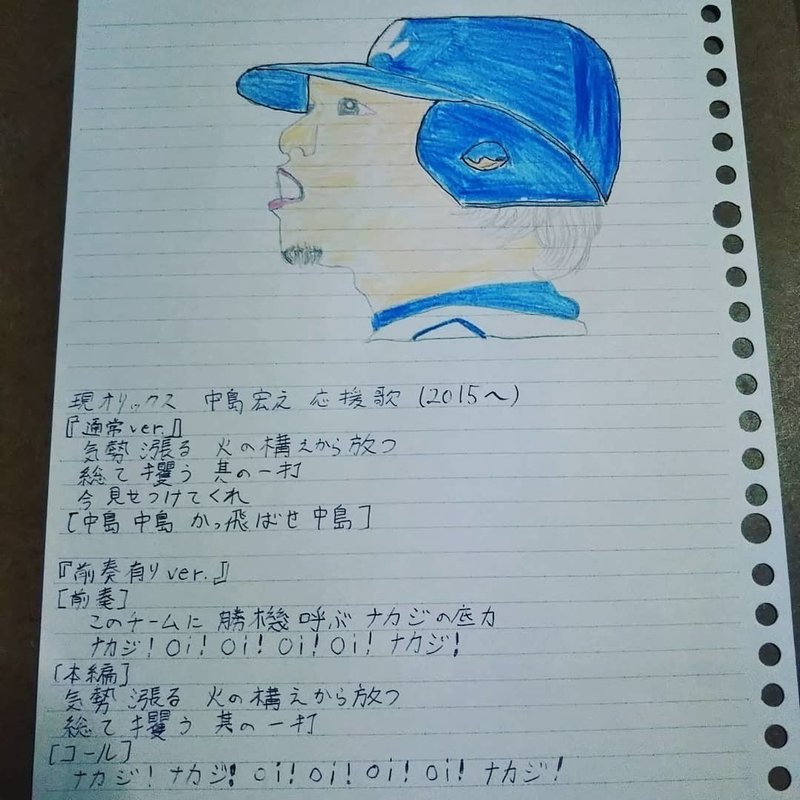 現オリックス 中島宏之 応援歌 (2015〜)
『通常ver.』
気勢漲る 火の構えから放つ
総て攫う 其の一打
今見せつけてくれ
[中島 中島 かっ飛ばせ 中島]
『前奏有りver.』
[前奏]
このチームに 勝機呼ぶ ナカジの底力
ナカジ! Oi! Oi! Oi! Oi! ナカジ!
[本編]
気勢漲る 火の構えから放つ
総て攫う 其の一打
[コール]
ナカジ! ナカジ! Oi! Oi! Oi! Oi! ナカジ!